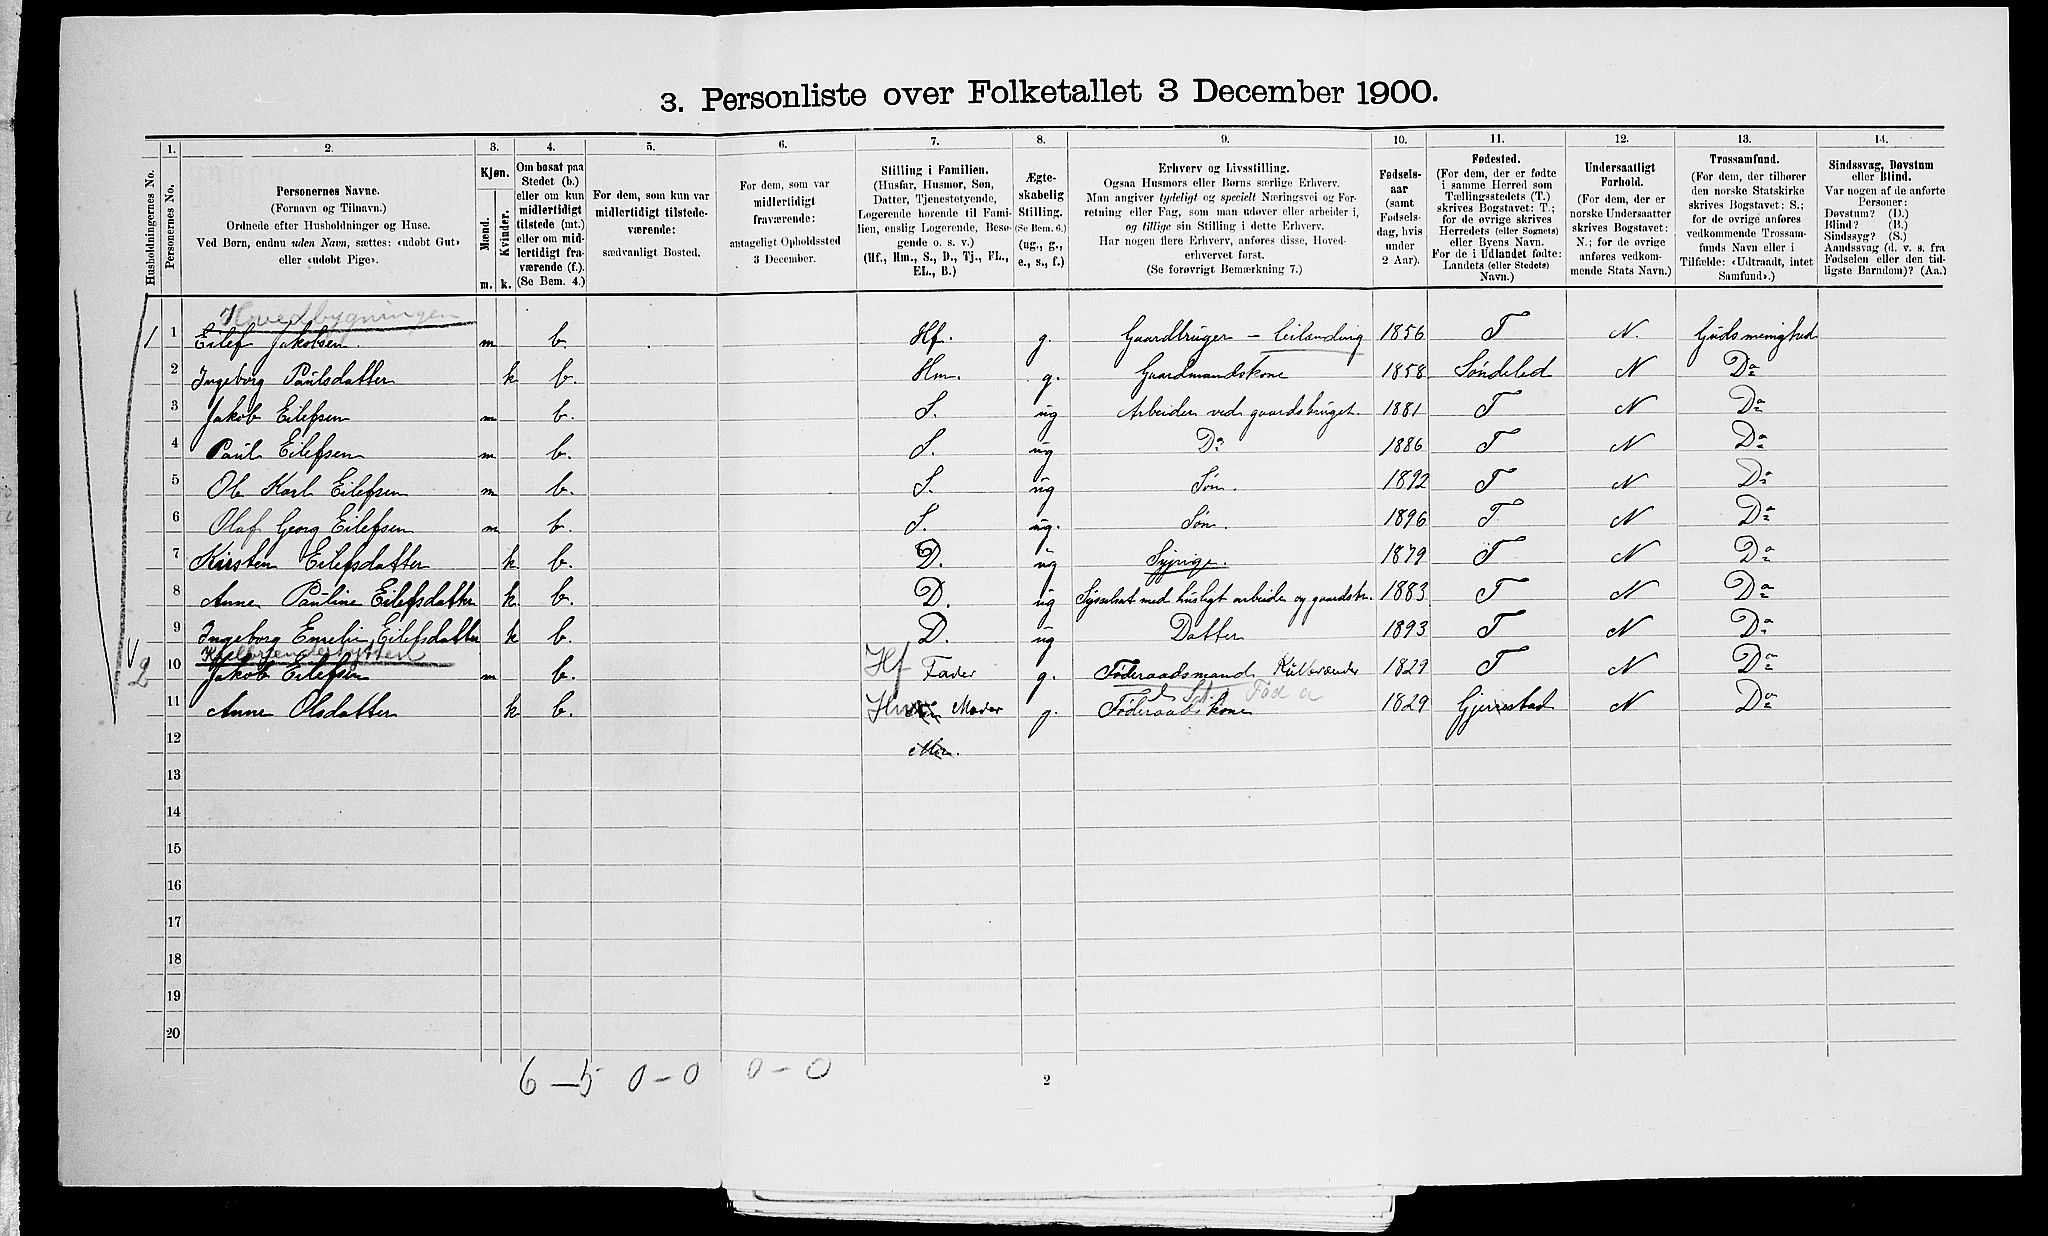 3. Personliste over Folketallet 3 December 1900.
Husholdningernes No.
1. Personernes No.
2. Personernes Navne. (Fornavn og Tilnavn.) Ordnede efter Husholdninger og Huse. Ved Børn, endnu uden Navn, sættes: «udøbt Gut» eller «udøbt Pige».
3. Kjøn. Mænd. m. Kvinder. k.
4. Om bosat paa Stedet (b.) eller om kun midlertidigt tilstede (mt.) eller om midlertidigt fraværende (f.) (Se Bem. 4.)
5. For dem, som kun var midlertidigt tilstedeværende: sædvanligt Bosted.
6. For dem, som var midlertidigt fraværende: antageligt Opholdssted 3 December.
7. Stilling i Familien. (Husfar, Husmor, Søn, Datter, Tjenestetyende, Logerende hørende til Familien, enslig Logerende, Besøgende o. s. v.) (Hf., Hm., S., D., Tj., FL., EL., B.)
8. Ægteskabelig Stilling. (Se Bem. 6.) (ug., g., e., s., f.)
9. Erhverv og Livsstilling. Ogsaa Husmors eller Børns særlige Erhverv. Man angiver tydeligt og specielt Næringsvei og Forretning eller Fag, som man udøver eller arbeider i, og tillige sin Stilling i dette Erhverv. Har nogen flere Erhverv, anføres disse, Hovederhvervet først. (Se forøvrigt Bemærkning 7.)
10. Fødselsaar (samt Fødselsdag, hvis under 2 Aar).
11. Fødested. (For dem, der er fødte i samme Herred som Tællingsstedets (T.) skrives Bogstavet: T.; for de øvrige skrives Herredets (eller Sognets) eller Byens Navn. For de i Udlandet fødte: Landets (eller Stedets) Navn.)
12. Undersaatligt Forhold. (For dem, der er norske Undersaatter skrives Bogstavet: N.; for de øvrige anføres vedkommende Stats Navn.)
13. Trossamfund. (For dem, der tilhører den norske Statskirke skrives Bogstavet: S.; for de øvrige anføres vedkommende Trossamfunds Navn eller i Tilfælde: «Udtraadt, intet Samfund».)
14. Sindssvag, Døvstum eller Blind. Var nogen af de anførte Personer: Døvstum? (D.) Blind? (B.) Sindssyg? (S.) Aandssvag (d. v. s. fra Fødselen eller den tidligste Barndom)? (Aa.)
Hovedbygningen
1 1 Eilef Jakobsen m b. Hf. g. Gaardbruger - leilending 1856 T N. Gudsmenighed
2 Ingeborg Paulsdatter k b. Hm. g. Gaardmandskone 1858 Søndeled N Do
3 Jakob Eilefsen m b. S. ug Arbeider ved gaardsbruget. 1881 T N Do
4 Paul Eilefsen m b. S. ug Do 1886 T N Do
5 Ole Karl Eilefsen m b. S. ug Søn. 1892 T N Do
6 Olaf Georg Eilefsen m b. S. ug. Søn. 1896 T N Do
7 Kirsten Eilefsdatter k b. D. ug Sypige. 1879 T N Do
8 Anne Pauline Eilefsdatter k. b. D. ug Sysselsat med husligt arbeide og gaardsbr. 1883 T N Do
9 Ingeborg Emelie Eilefsdatter k b. D. ug Datter 1893 T N Do
v 2 10 Jakob Eilefsen m b. Hf Fader g. Føderaadsmand Kulbrænder 1829 T N Do
11 Anne Olsdatter k b. Hm Moder g. Føderaadskone 1829 Gjerrestad N Do
12
13
14
15
16
17
18
19
20
6 - 5 0 - 0 0 - 0
2